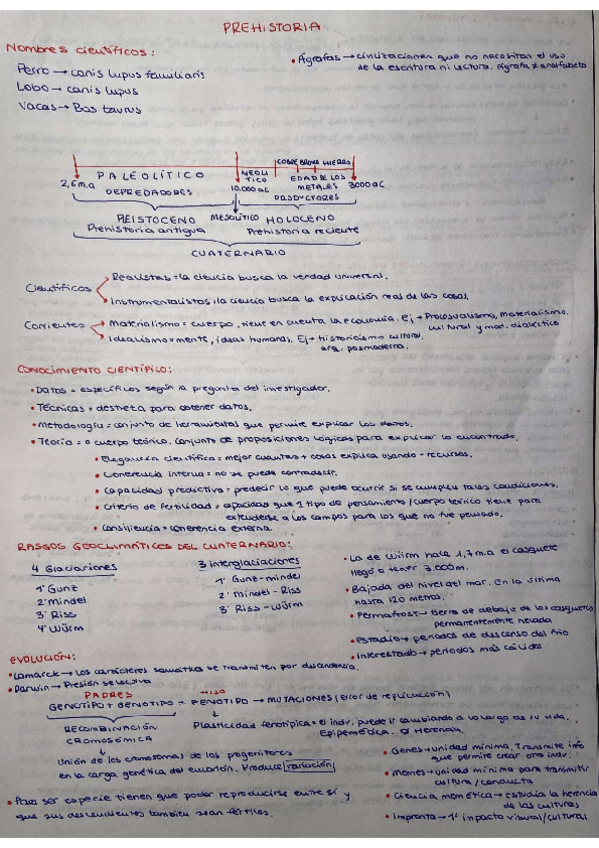 PREHISTORIA
Nombres científicos:
Perro → canis lupus familiaris
Lobo → canis lupus
Vacas → Bos taurus
• Ágrafas → civilizaciones que no necesitan el uso
de la escritura ni lectura. Ágrafa ≠ analfabeto
COBRE BRONCE HIERRO
PALEOLÍTICO
NEOLÍTICO
EDAD DE LOS METALES
2,6 m.a
DEPREDADORES
10.000 aC
PRODUCTORES
3000 aC
PLEISTOCENO MESOLÍTICO HOLOCENO
Prehistoria antigua Prehistoria reciente
CUATERNARIO
Científicos
Realistas = la ciencia busca la verdad universal.
Instrumentalistas: la ciencia busca la explicación real de las cosas.
Corrientes
Materialismo = cuerpo, tiene en cuenta la economía. Ej → Procesualismo, materialismo
cultural y mat. dialéctico
Idealismo = mente, ideas humanas. Ej → Historicismo cultural,
arq. posmoderna.
CONOCIMIENTO CIENTÍFICO:
• Datos = específicos según a pregunta del investigador.
• Técnicas = destreza para obtener datos.
• Metodología = conjunto de herramientas que permite explicar los datos.
• Teoría = o cuerpo teórico. Conjunto de proposiciones lógicas para explicar lo encontrado.
• Elegancia científica = mejor cuantas + cosas explica usando - recursos.
• Coherencia interna = no se puede contradecir.
• Capacidad predictiva = predecir lo que puede ocurrir si se cumplen tales condiciones.
• Criterio de fertilidad = capacidad que 1 tipo de pensamiento/cuerpo teórico tiene para
extenderse a los campos para los que no fue pensado.
• Consiliencia = coherencia externa.
RASGOS GEOCLIMÁTICOS DEL CUATERNARIO:
4 Glaciaciones
1º Gunz
2º Mindel
3º Riss
4º Würm
3 interglaciaciones
1º Gunz-mindel
2º mindel - Riss
3º Riss - Würm
• La de Würm hace 1,7 m.a el casquete
llegó a tener 3.000m.
• Bajada del nivel del mar. En la última
hasta 120 metros.
• Permafrost → tierra de debajo de los casquetes
permanentemente nevada
• Estadio → periodos de descenso del frío
• Interestadio → periodos más cálidos
EVOLUCIÓN:
• Lamarck → los carácteres somáticos se transmiten por descendencia.
• Darwin → Presión selectiva
PADRES HIJO
GENOTIPO + GENOTIPO = FENOTIPO → MUTACIONES (error de replicación)
RECOMBINACIÓN
CROMOSÓMICA
Plasticidad fenotípica = el indv. puede ir cambiando a lo largo de su vida.
Herencia.
Unión de los cromosomas de los progenitores
en la carga genética del embrión. Produce variación
• Para ser especie tienen que poder reproducirse entre sí y
que sus descendientes también sean fértiles.
• Genes → unidad mínima. Transmite info
que permite crear otro indv.
• memes → unidad mínima para transmitir
cultura/conducta
• Ciencia memética → estudia la herencia
de las culturas
• Impronta → 1º impacto visual/cultural